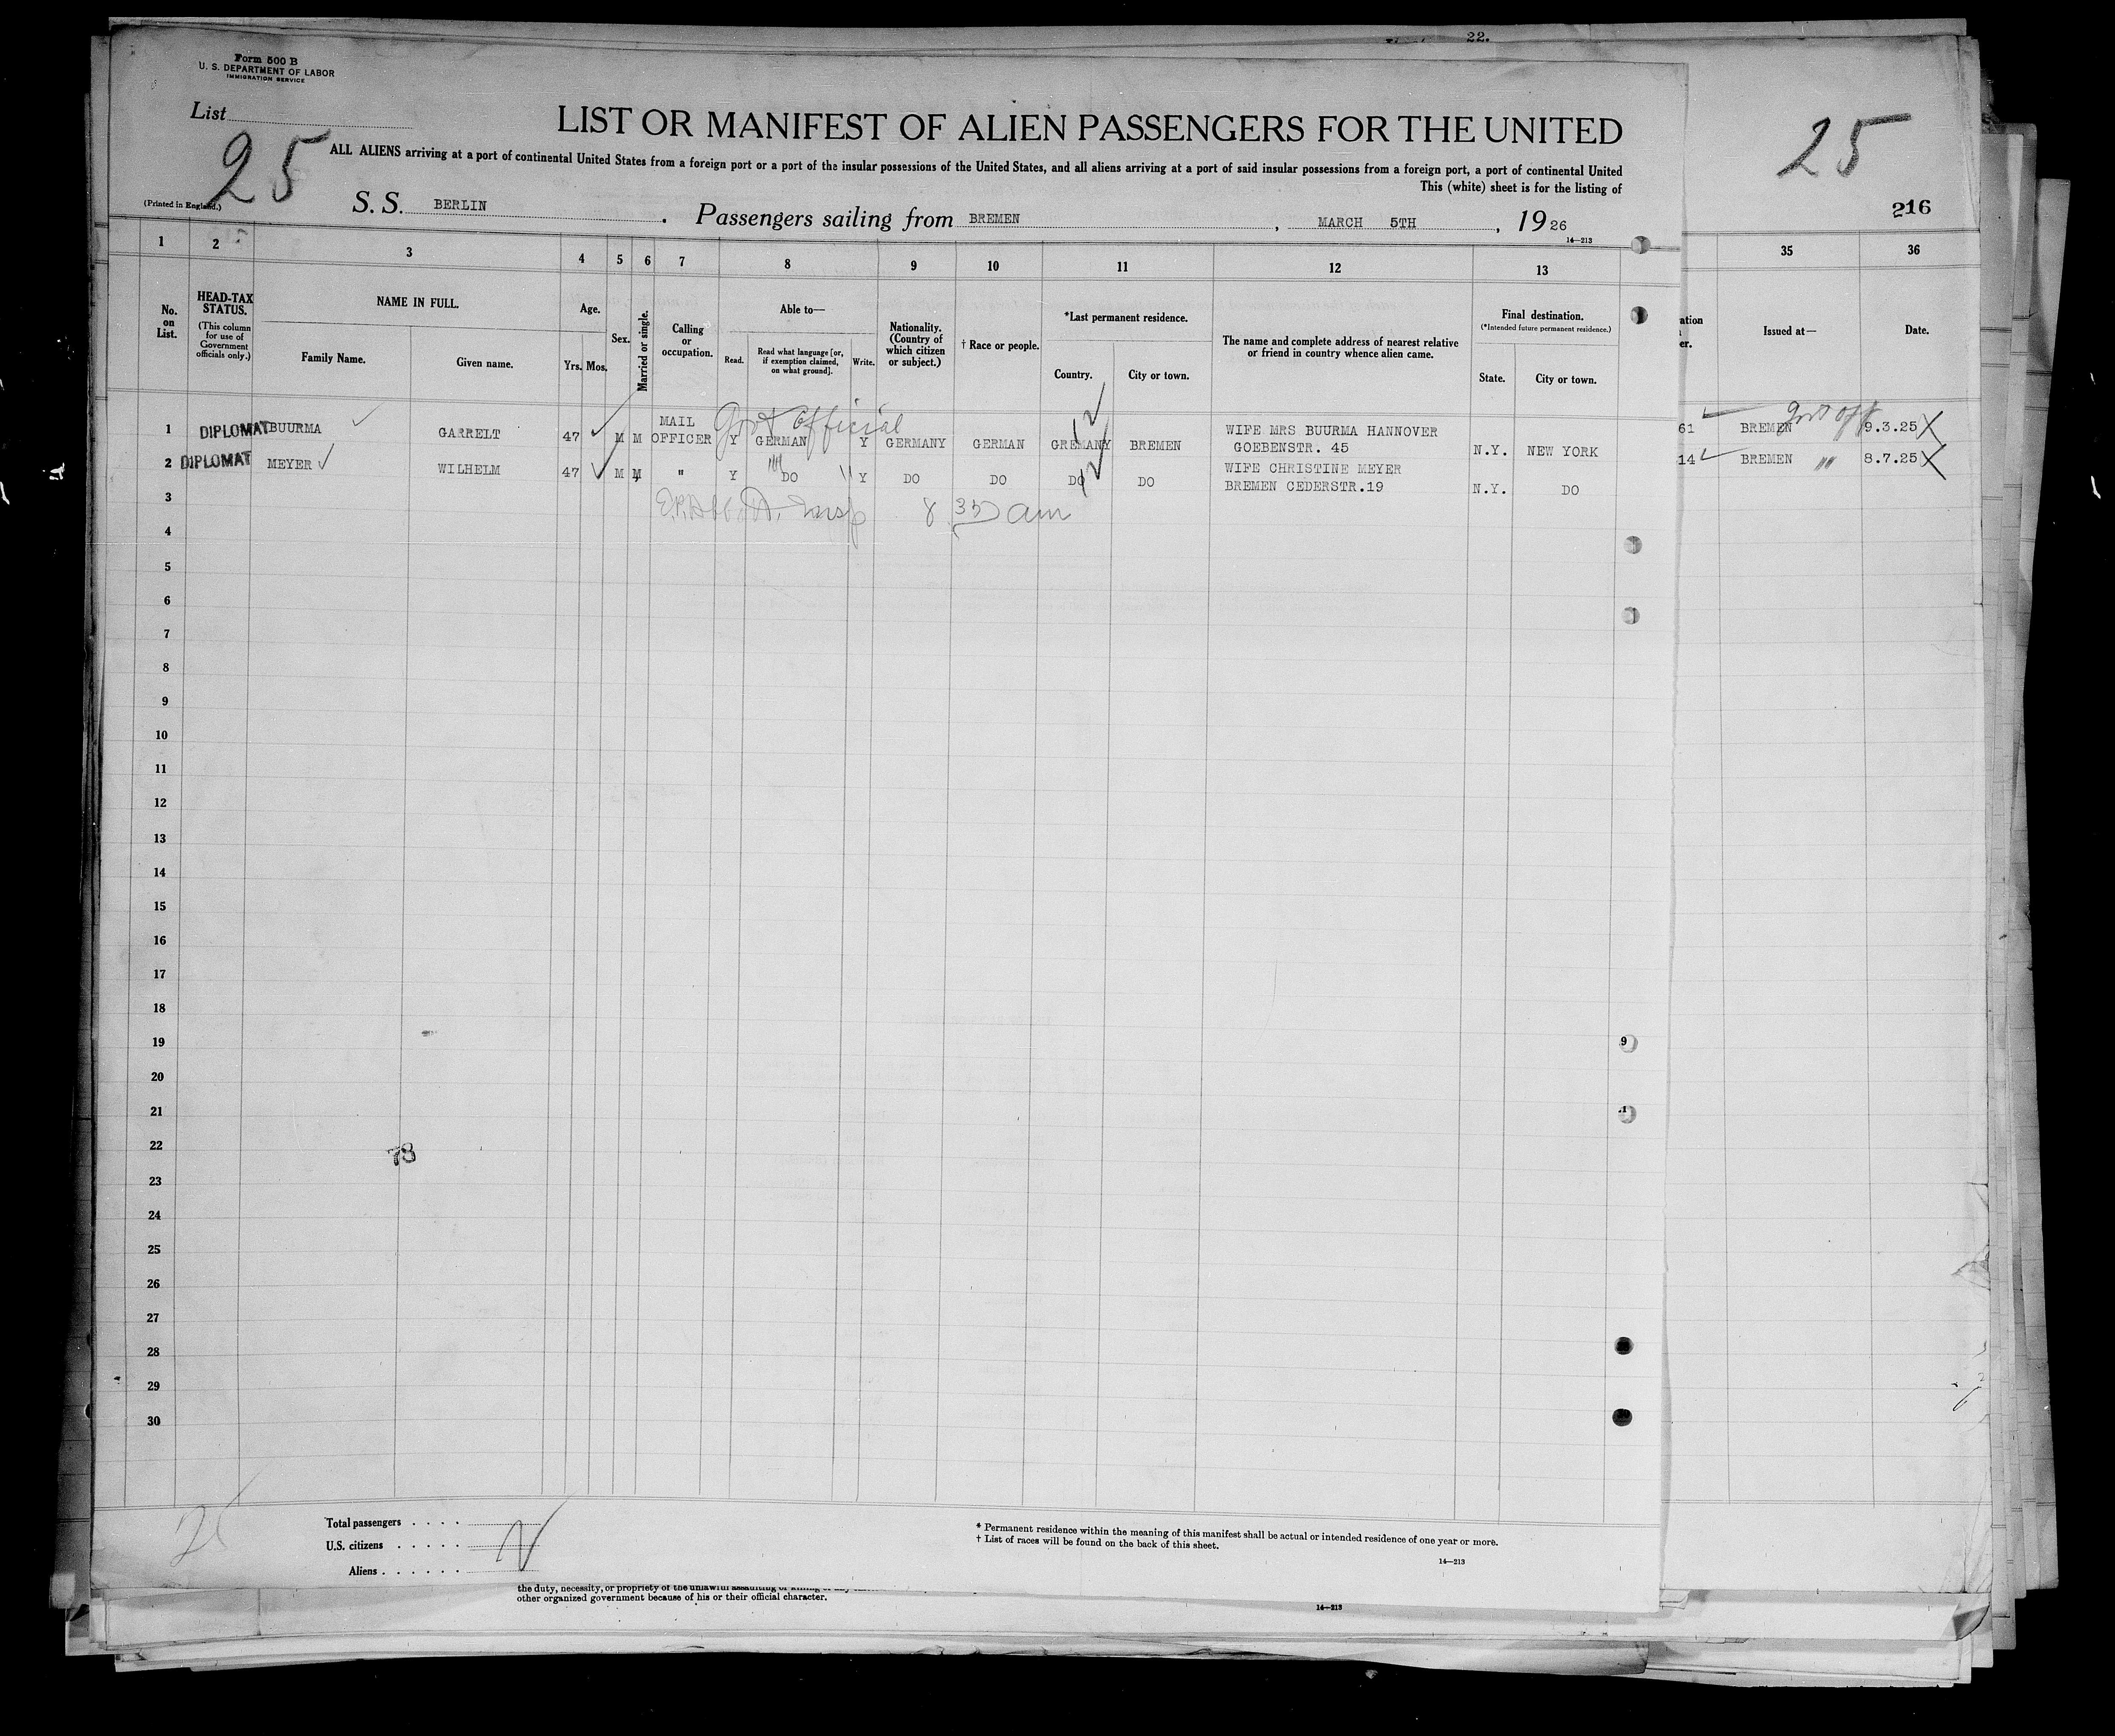 22.
Form 500 B
U. S. DEPARTMENT OF LABOR
IMMIGRATION SERVICE
List
25
LIST OR MANIFEST OF ALIEN PASSENGERS FOR THE UNITED
ALL ALIENS arriving at a port of continental United States from a foreign port or a port of the insular possessions of the United States, and all aliens arriving at a port of said insular possessions from a foreign port, a port of continental United
This (white) sheet is for the listing of
25
216
(Printed in England.)
S. S. BERLIN . Passengers sailing from BREMEN , MARCH 5TH , 1926
14—213
1 2 3 4 5 6 7 8 9 10 11 12 13 35 36
No. on List.
HEAD-TAX STATUS.
(This column for use of Government officials only.)
NAME IN FULL.
Family Name. Given name.
Age.
Yrs. Mos.
Sex.
Married or single.
Calling or occupation.
Able to—
Read. Read what language [or, if exemption claimed, on what ground]. Write.
Nationality. (Country of which citizen or subject.)
† Race or people.
*Last permanent residence.
Country. City or town.
The name and complete address of nearest relative or friend in country whence alien came.
Final destination.
(*Intended future permanent residence.)
State. City or town.
ation
er.
Issued at—
Date.
Govt Official
1 DIPLOMAT BUURMA GARRELT 47 M M MAIL OFFICER Y GERMAN Y GERMANY GERMAN GREMANY BREMEN WIFE MRS BUURMA HANNOVER GOEBENSTR. 45 N.Y. NEW YORK 61 BREMEN Govt off 9.3.25
2 DIPLOMAT MEYER WILHELM 47 M M " Y DO Y DO DO DO DO WIFE CHRISTINE MEYER BREMEN CEDERSTR.19 N.Y. DO 14 BREMEN 8.7.25
3 Insp 8 35 am
4
5
6
7
8
9
10
11
12
13
14
15
16
17
18
19
20
21
22
78
23
24
25
26
27
28
29
30
25
Total passengers . . . .
U.S. citizens . . . . .
Aliens . . . . . .
* Permanent residence within the meaning of this manifest shall be actual or intended residence of one year or more.
† List of races will be found on the back of this sheet.
14—213
the duty, necessity, or propriety of the unlawful assaulting or killing
other organized government because of his or their official character.
14—213